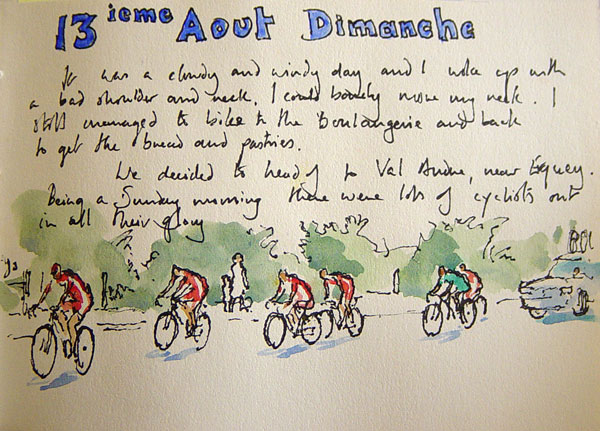 13ieme Aout Dimanche
It was a cloudy and windy day and I woke up with
a bad shoulder and neck. I could barely move my neck. I
still managed to bike to the Boulangerie and back
to get the bread and pastries.
We decided to head of to Val Andre, near Erquy.
Being a Sunday morning there were lots of cyclists out
in all their glory